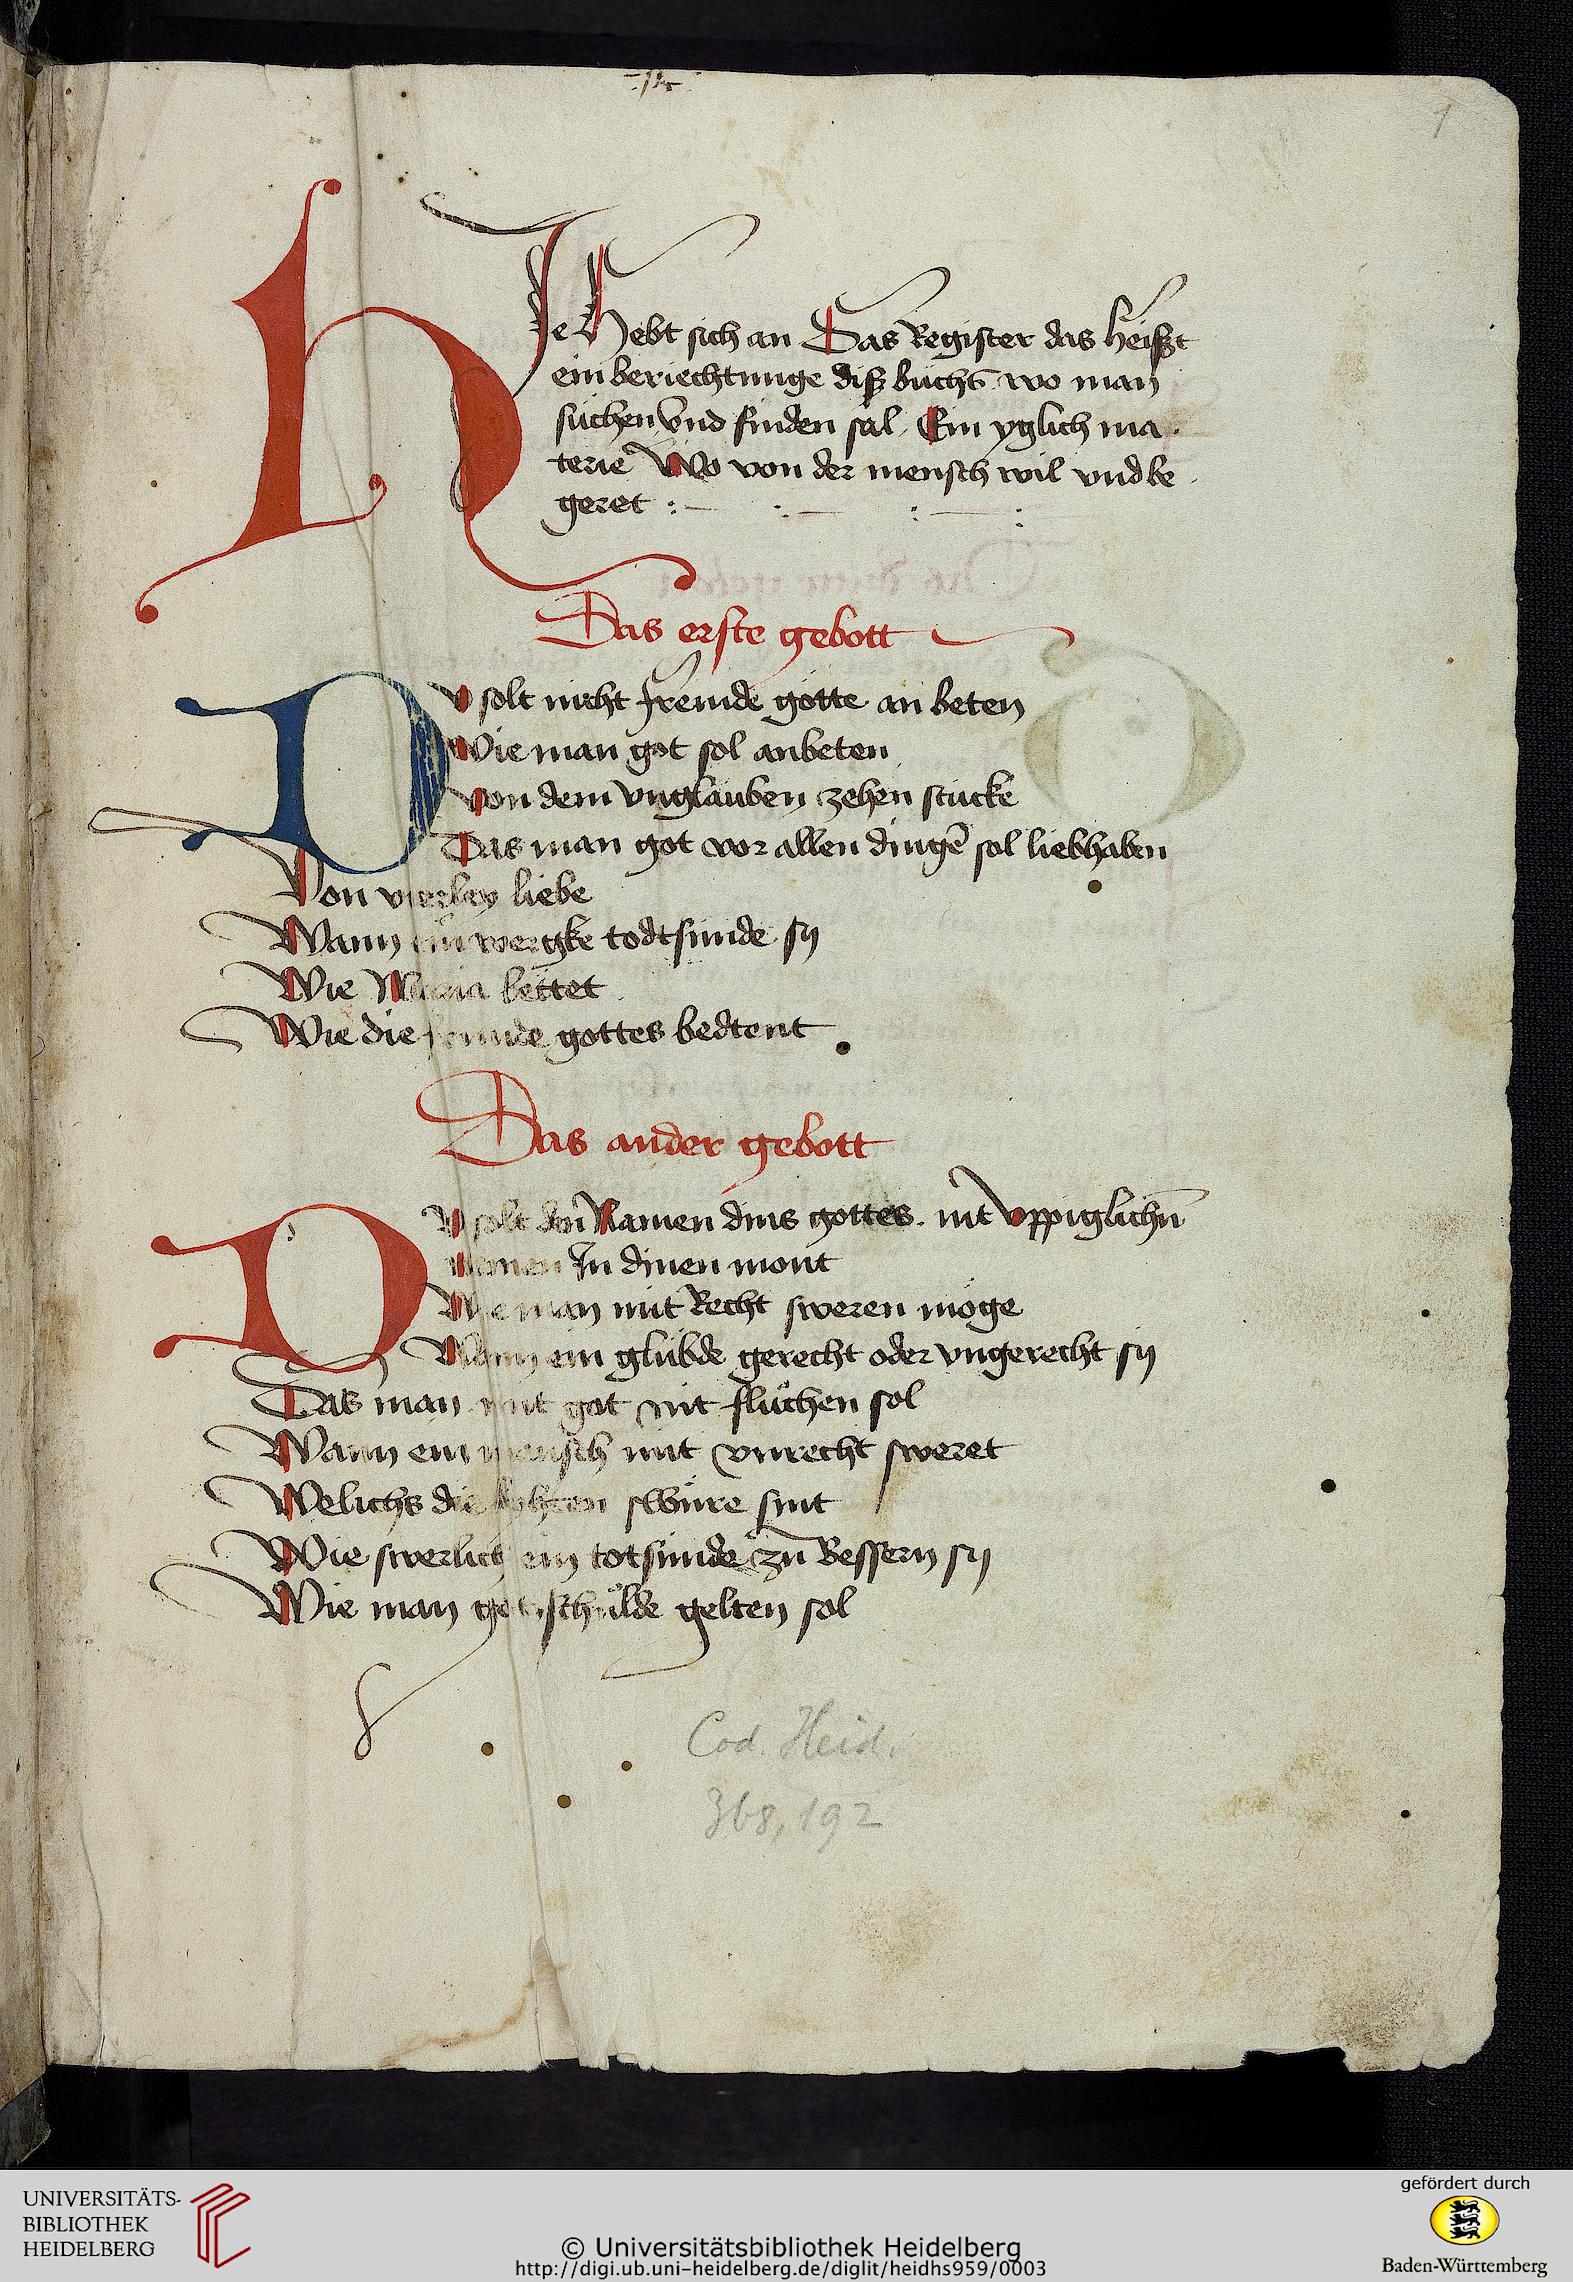 1
HJe Hebt sich an Das Register das heisßt
ein beriechtunge diß buchs wo man
suchen vnd finden sal Ein yglich ma
terie Wo von der mensch wil vnd be
geret :
Das erste gebott
DV solt nicht fremde götte an beten
Wie man got sol anbeten
Von dem vnglauben zehen stücke
Das man got vor allen dingē sol liebhaben
Von vierley liebe
Wann ein wergke todtsunde sy
Wie Maria bettet
Wie die frunde gottes bedtent
Das ander gebott
DV solt den Namen dins gottes nit vppiglichn̄
nemen In dinen mont
Wie man mit Recht sweren möge
Wann ein glubde gerecht oder vngerecht sy
Das man mit got nit fluchen sol
Wann ein mensch mit vnrecht sweret
Welichs die swüre sint
Wie swerlich ein totsunde zu Bessern sy
Wie man schulde gelten sol
Cod. Heid.
368,192
UNIVERSITÄTS-
BIBLIOTHEK
HEIDELBERG
© Universitätsbibliothek Heidelberg
http://digi.ub.uni-heidelberg.de/diglit/heidhs959/0003
gefördert durch
Baden-Württemberg